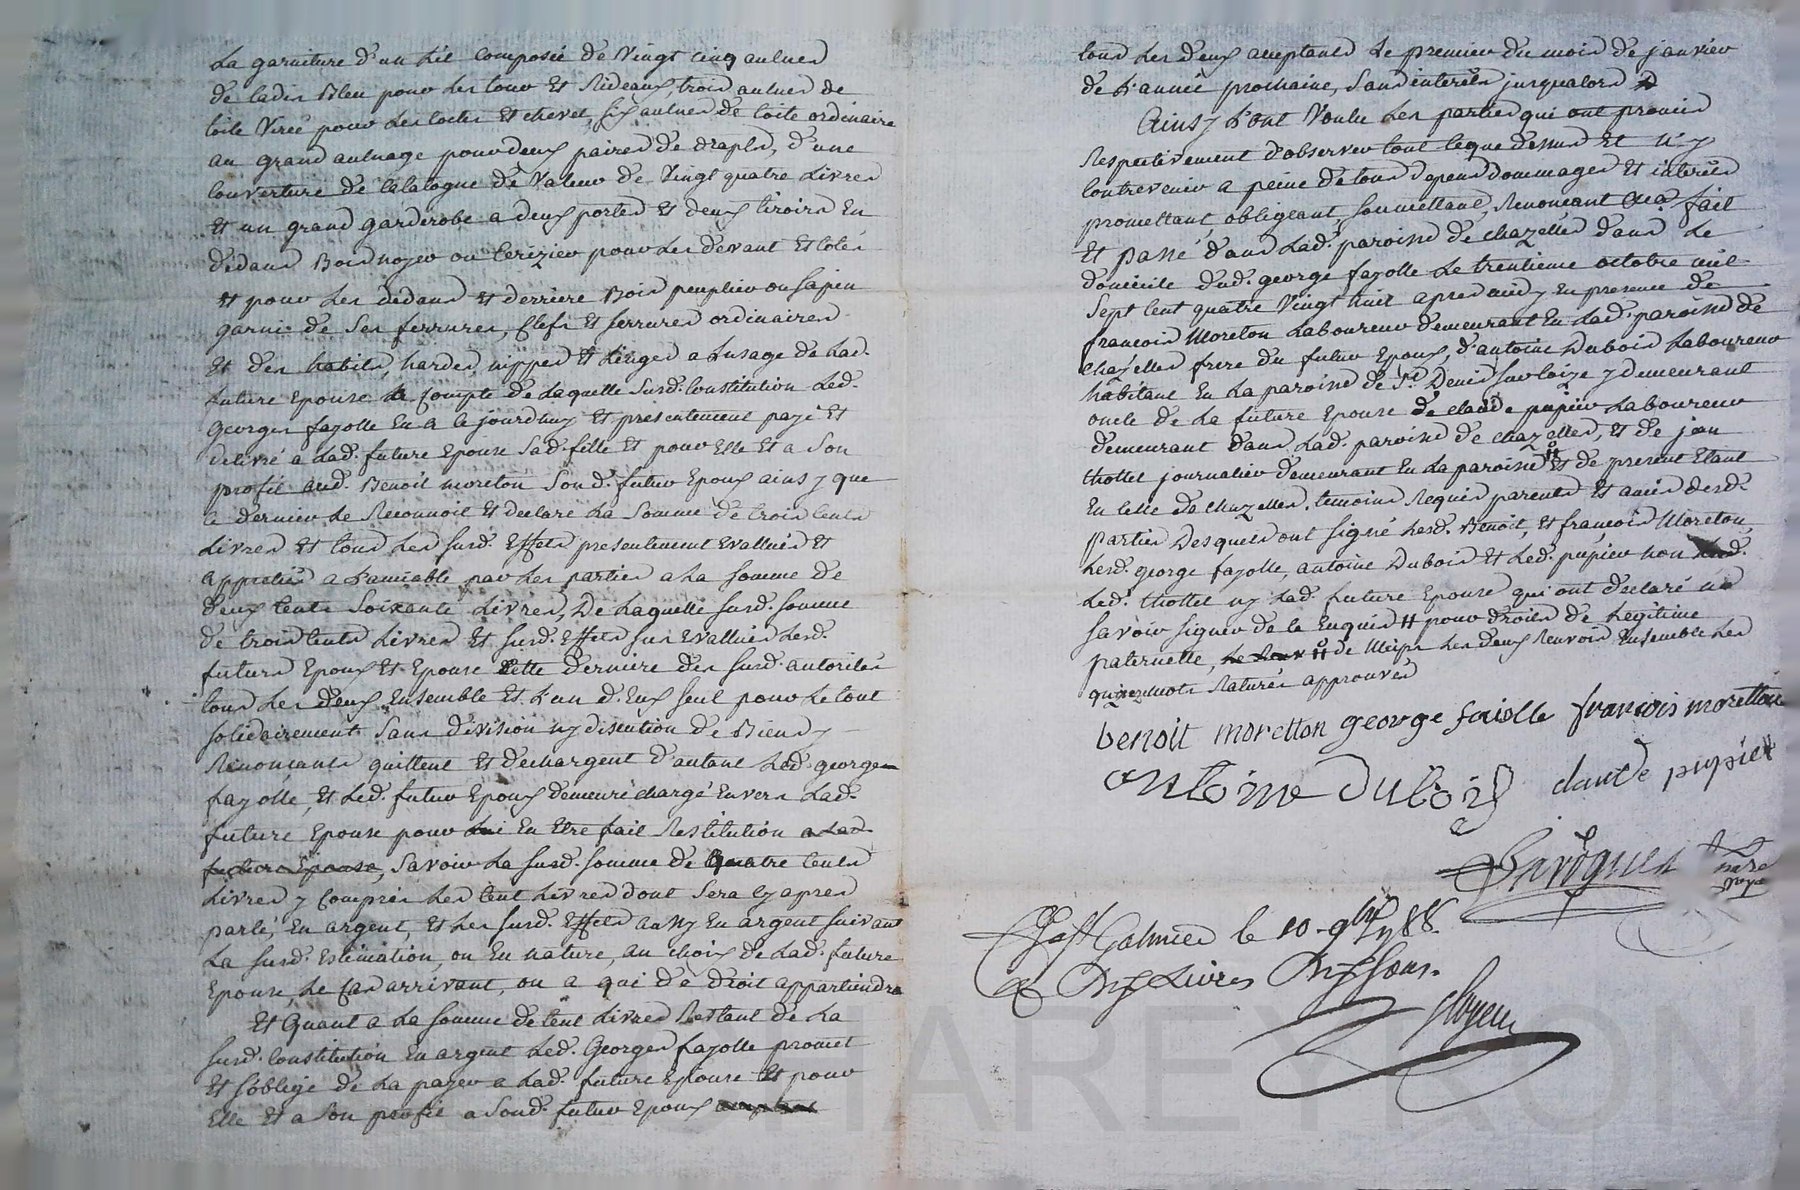 La garniture d'un Lit Composée de Vingt cinq aulnes
de ladis Bleu pour Les tour Et Rideaux, trois aulnes de
toile Virée pour Les Et chevet, six aulnes de toile ordinaire
au grand aulnage pour deux paires de draps, d'une
Couverture de Catalogne de Valeur de Vingt quatre Livres
Et un grand garderobe a deux portes Et deux tiroirs En
dedans Bois noyer ou Cerizier pour Les devant Et Cotés
Et pour Les dedans Et derriere Bois peuplier ou sapin
garni de Ses ferrures, Clefs Et serrures ordinaires
Et des habits, hardes, nippes Et Linges a Lusage de Lad.
future Epouse a Compte de Laquelle Susd. Constitution Led.
Georges fayolle En a Ce jourdhuy Et presentement payé Et
delivré a Lad. future Epouse Sad. fille Et pour Elle Et a Son
profit aud. Benoit moreton Son d. futur Epoux ainsy que
Ce dernier Le Reconnoit Et declare La Somme de trois Cents
Livres Et tous Les Susd. Effets presentement Evallués Et
appretiés a Lamiable par Les parties a La somme de
deux Cents Soixante Livres, De Laquelle Susd. somme
de trois Cents Livres Et Susd. Effets sus Evallués Lesd.
futurs Epoux Et Epouse Cette derniere des Susd. autorités
tous Les deux Ensemble Et L'un d'Eux seul pour Le tout
solidairement Sans division ny discution de Biens y
Renonçants quittent Et dechargent d'autant Led. georges
fayolle, Et Led. futur Epoux demeure chargé Envers Lad.
future Epouse pour Lui En Etre fait Restitution a Lad.
future Epouse, Savoir La Susd. somme de Quatre Cents
Livres y Compris Les Cent Livres dont Sera Cy apres
parlé, En argent, Et Les Susd. Effets aussy En argent suivant
La Susd. Estimation, ou En nature, au choix de Lad. future
Epouse, Le Cas arrivant, ou a qui de droit appartiendra
Et Quant a La somme de Cent Livres Restant de La
Susd. Constitution En argent Led. Georges fayolle promet
Et s'oblige de La payer a Lad. future Epouse Et pour
Elle Et a Son profit a Sond. futur Epoux
tous Les deux acceptants Le premier du mois de janvier
de L'année prochaine, Sans interets jusqualors
Ainsy L'ont Voulu Les parties qui ont promis
Respectivement d'observer tout Ceque dessus Et n'y
Contrevenir a peine de tous depens dommages Et interets
promettant, obligeant, Soumettant, Renonçant fait
Et passé dans Lad. paroisse de chazelles dans Le
domicile dud. george fayolle Le trentieme octobre mil
Sept Cent quatre Vingt huit apres midy En presence de
françois Moreton Laboureur demeurant En Lad. paroisse de
chazelles frere du futur Epoux, d'antoine Dubois Laboureur
habitant En La paroisse de St. Denis sur Coize y demeurant
oncle de La future Epouse de claude pupier Laboureur
demeurant dans Lad. paroisse de chazelles, Et de jean
thollet journalier demeurant En La paroisse Et de present Etant
En Celle de Chazelles, temoins Requis parents Et amis desd.
parties Desquels ont signé Lesd. Benoit, Et françois Moreton,
Lesd. george fayolle, antoine Dubois Et Led. pupier non
Led. thollet ny Lad. future Epouse qui ont declaré ne
savoir signer de Ce Enquis # pour droits de Legitime
paternelle, # de Meÿs Les deux Renvois Ensemble Les
quinze mots Raturés approuvés
benoit moretton george faiolle françois moretton
antoine dubois claude pupier
Not Galmier le 10 9bre 1788.
Dix Livres Dix sous.
CHAREYRON